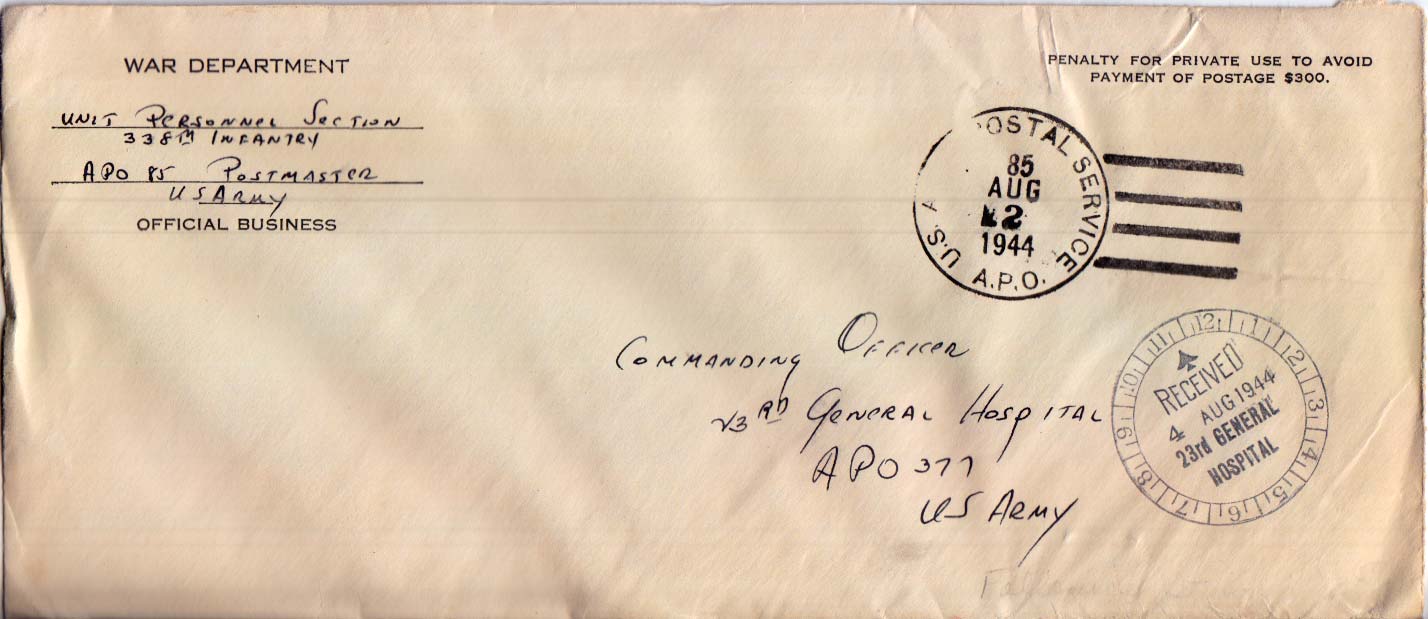 WAR DEPARTMENT
UNIT PERSONNEL SECTION
338TH INFANTRY
APO 85 POSTMASTER
US ARMY
OFFICIAL BUSINESS
PENALTY FOR PRIVATE USE TO AVOID
PAYMENT OF POSTAGE $300.
POSTAL SERVICE
85
AUG
2
1944
U.S. A
A.P.O.
COMMANDING OFFICER
23RD GENERAL HOSPITAL
APO 377
US ARMY
12 1 2 3 4 5 6 7 8 9 10 11
RECEIVED
4 AUG 1944
23rd GENERAL
HOSPITAL